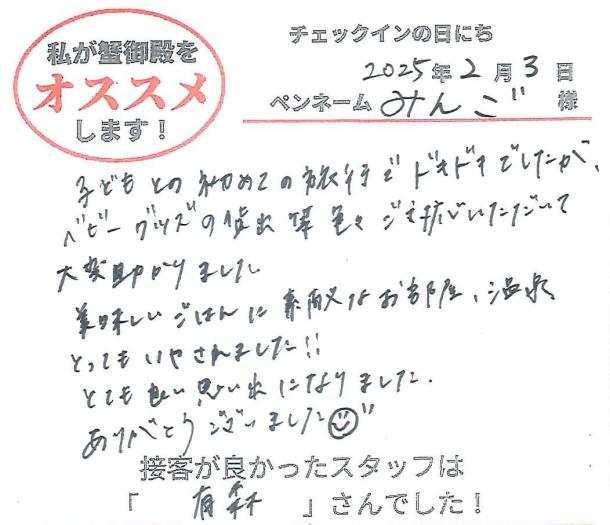 私が蟹御殿を
オススメ
します！
チェックインの日にち
2025年2月3日
ペンネーム みんご 様
子どもとの初めての旅行でドキドキでしたが、
ベビーグッズの貸出等色々ご対応いただいて
大変助かりました
美味しいごはんに素敵なお部屋、温泉
とってもいやされました!!
とても良い思い出になりました.
ありがとうございました
接客が良かったスタッフは
「 有森 」さんでした！